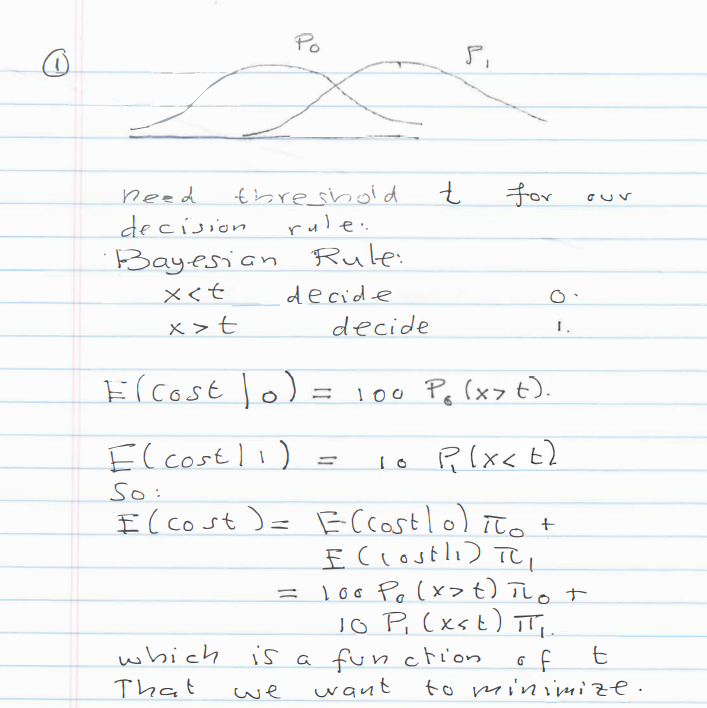 ① P₀ P₁
need threshold t for our
decision rule:
Bayesian Rule:
x<t decide 0.
x>t decide 1.
E(cost|0) = 100 P₀(x>t).
E(cost|1) = 10 P₁(x<t)
So:
E(cost) = E(cost|0) π₀ +
E(cost|1) π₁
= 100 P₀(x>t) π₀ +
10 P₁(x<t) π₁.
which is a function of t
That we want to minimize.